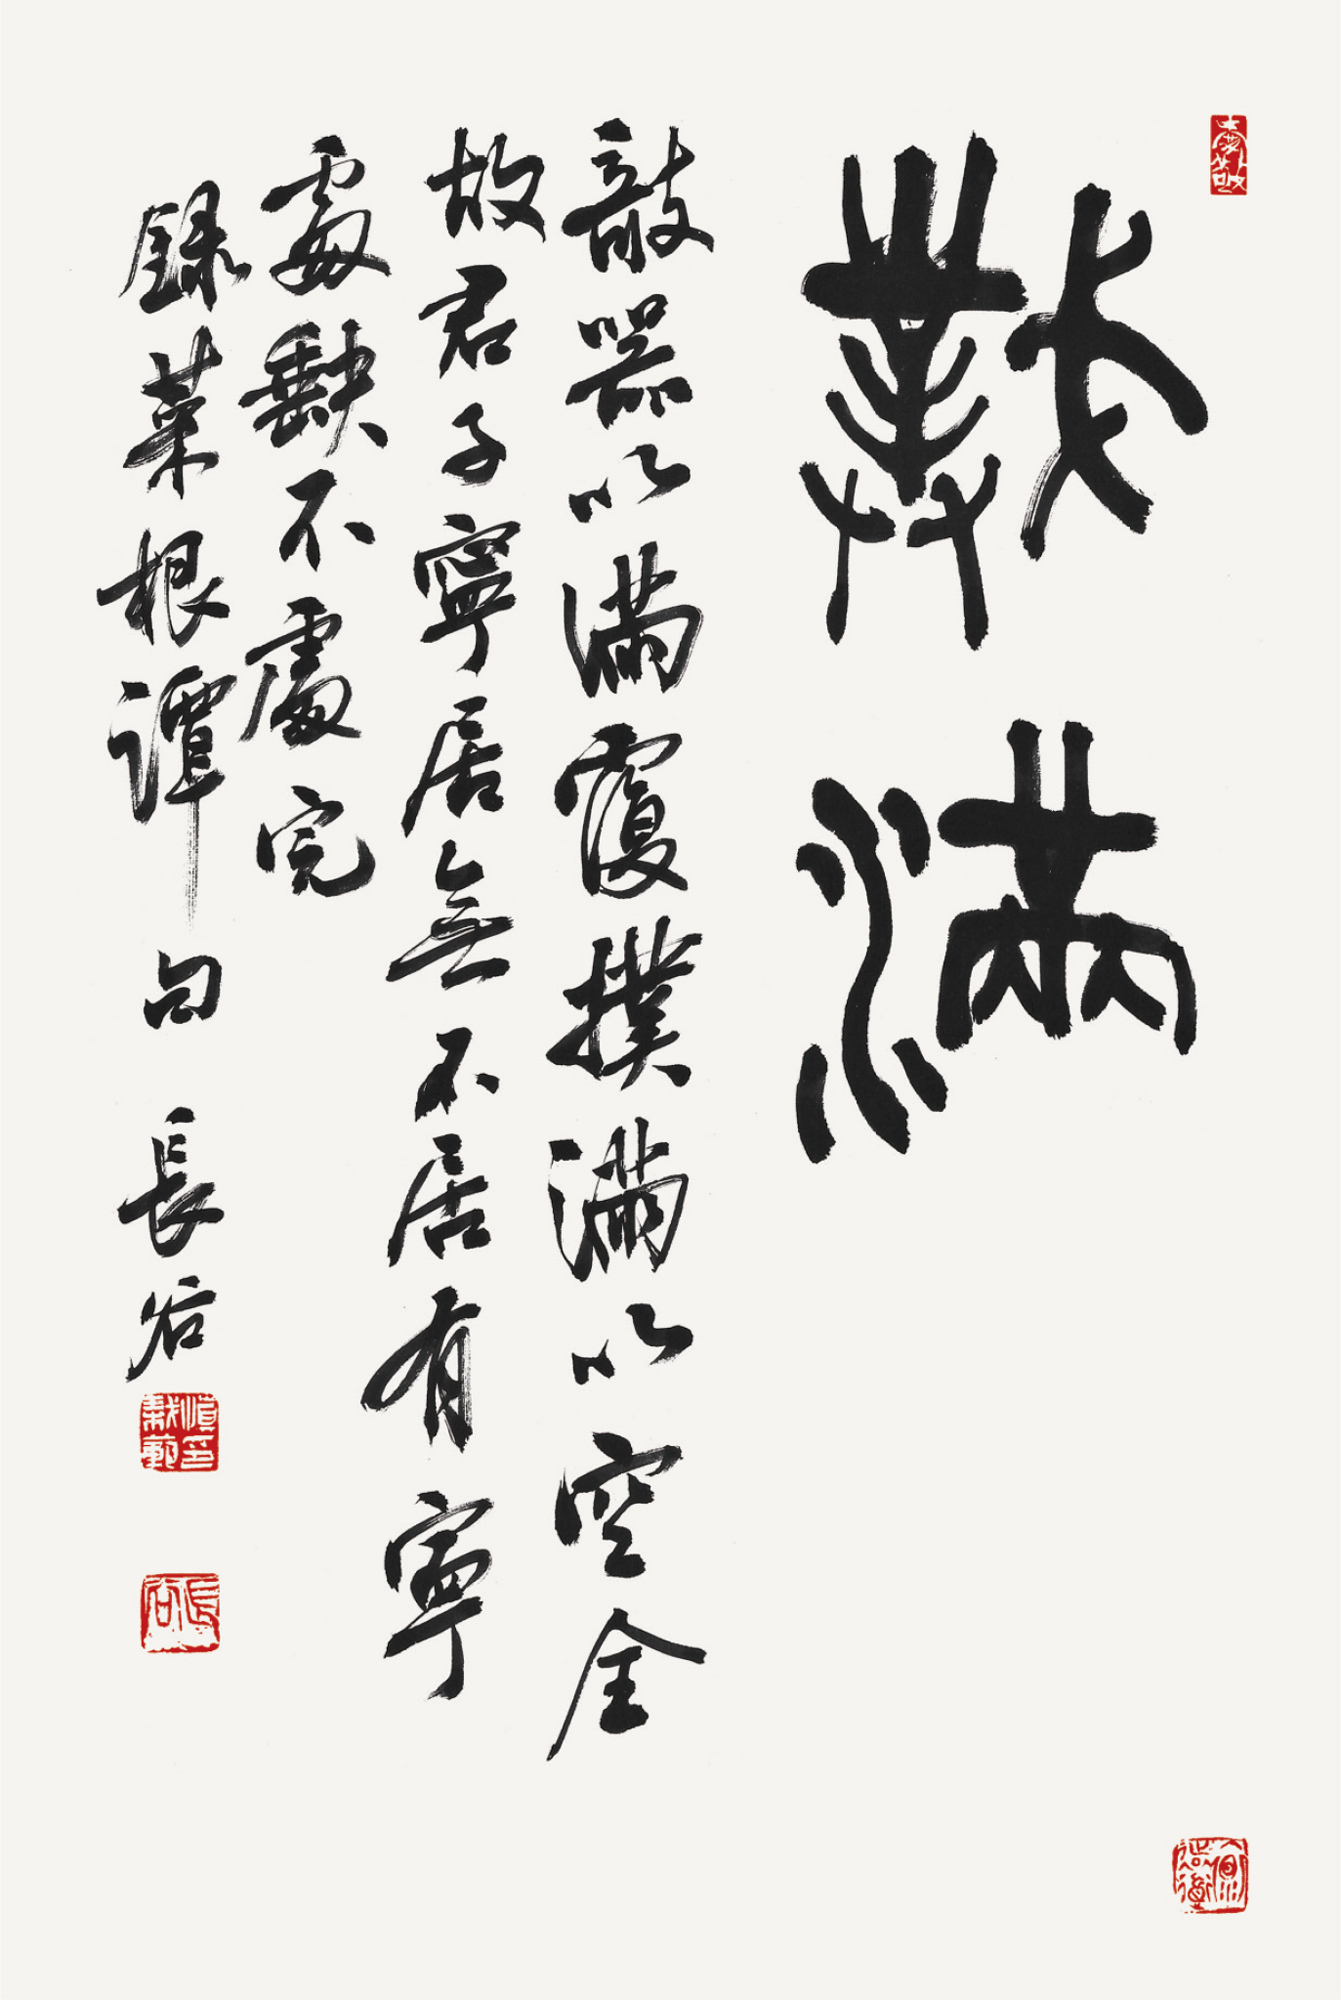 撲滿
敧器以滿覆撲滿以空全
故君子寧居無不居有寧
處缺不處完
錄菜根譚句 長谷
長谷